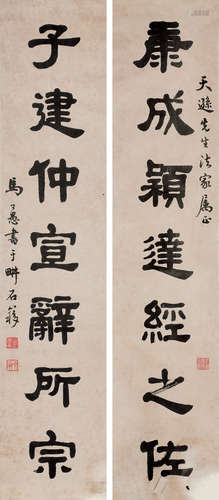 康成穎達經之佐
天遜先生法家屬正
子建仲宣辭所宗
馬公愚書于畊石簃